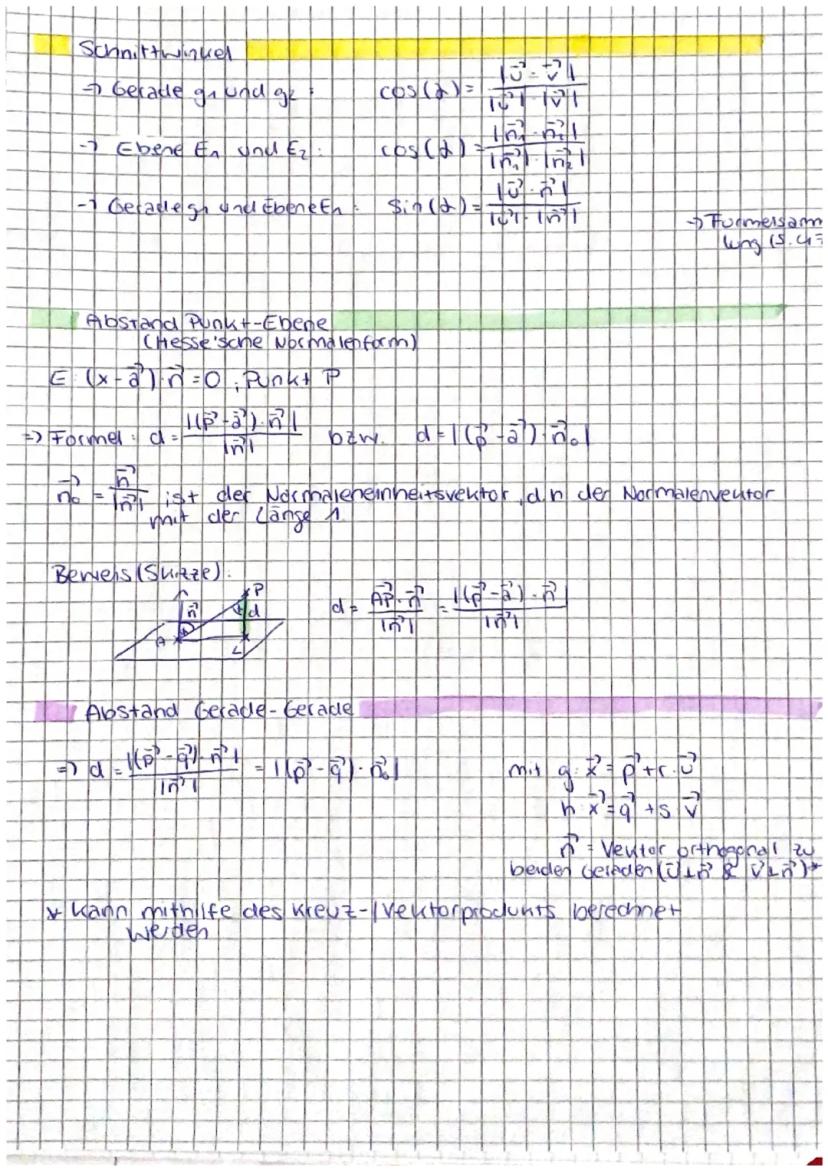 Schnittwinkel
→ Gerade g₁ und g₂: cos(α) = |u⃗ · v⃗| / |u⃗| · |v⃗|
→ Ebene E₁ und E₂: cos(α) = |n⃗₁ · n⃗₂| / |n⃗₁| · |n⃗₂|
→ Gerade g₁ und Ebene E₁: sin(α) = |u⃗ · n⃗| / |u⃗| · |n⃗|
→ Formelsamm
lung (S. 4
Abstand Punkt-Ebene
(Hesse'sche Normalenform)
E: (x - a⃗) · n⃗ = 0, Punkt P
=> Formel: d = |(p⃗ - a⃗) · n⃗| / |n⃗| bzw. d = |(p⃗ - a⃗) · n⃗₀|
n⃗₀ = n⃗ / |n⃗| ist der Normaleneinheitsvektor, d.h der Normalenvektor
mit der Länge 1
Beweis (Skizze):
P
n⃗ d
A
L
d = AP⃗ · n⃗ / |n⃗| = |(p⃗ - a⃗) · n⃗| / |n⃗|
Abstand Gerade-Gerade
=> d = |(p⃗ - q⃗) · n⃗| / |n⃗| = |(p⃗ - q⃗) · n⃗₀| mit g: x⃗ = p⃗ + r · u⃗
h: x⃗ = q⃗ + s v⃗
n⃗ = Vektor orthogonal zu
beiden Geraden (u⃗ ⊥ n⃗ & v⃗ ⊥ n⃗)*
* Kann mithilfe des Kreuz-/Vektorprodukts berechnet
werden